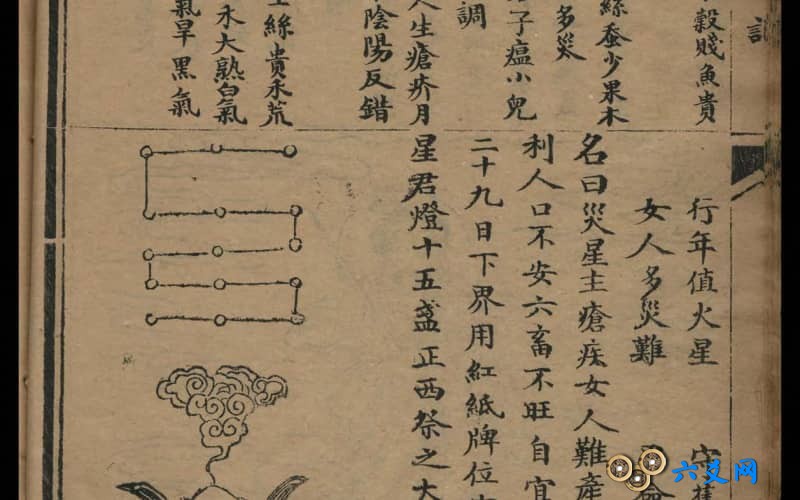 穀賤魚貴
絲蚕少果木
多災
子瘟小兒
調
人生瘡疥月
陰陽反錯
絲貴禾荒
禾大熟白氣
氣旱黑氣
行年值火星
女人多災難
名曰災星主瘡疾女人難產
利人口不安六畜不旺自宜
二十九日下界用紅紙牌位
星君燈十五盞正西祭之大
六爻网